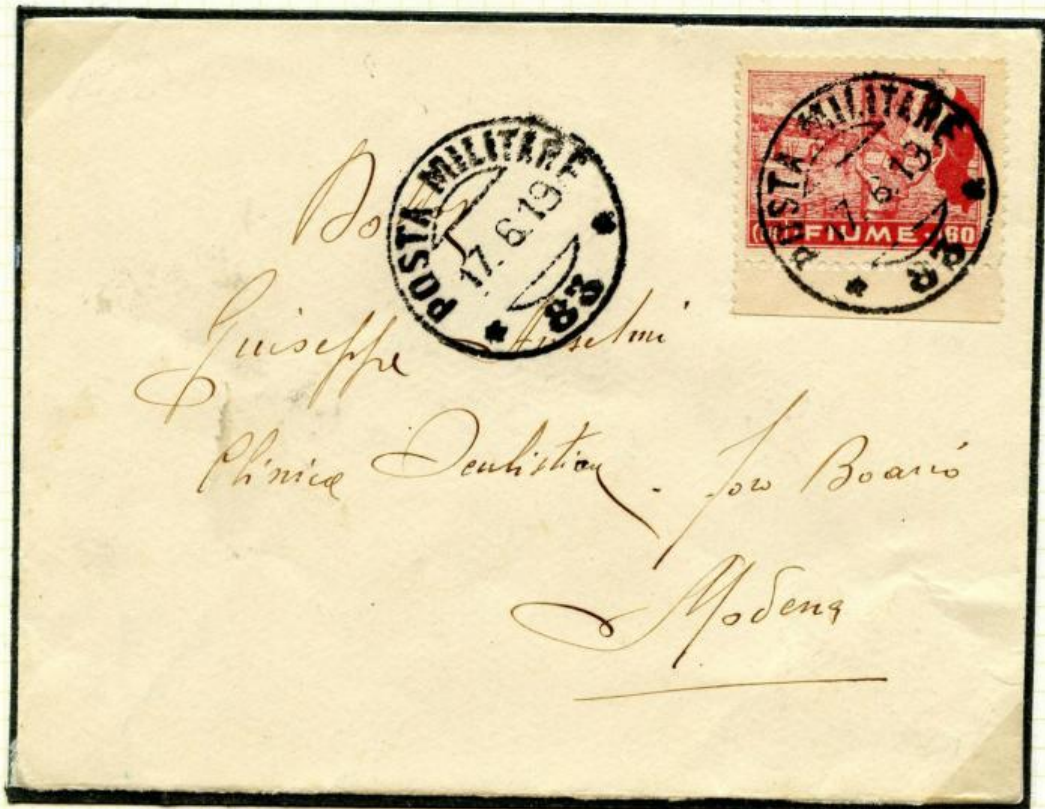 POSTA MILITARE
17. 6. 19
83
POSTA MILITARE
17. 6. 19
FIUME 60
Giuseppe Anselmi
Clinica Dentistica Foro Boario
Modena